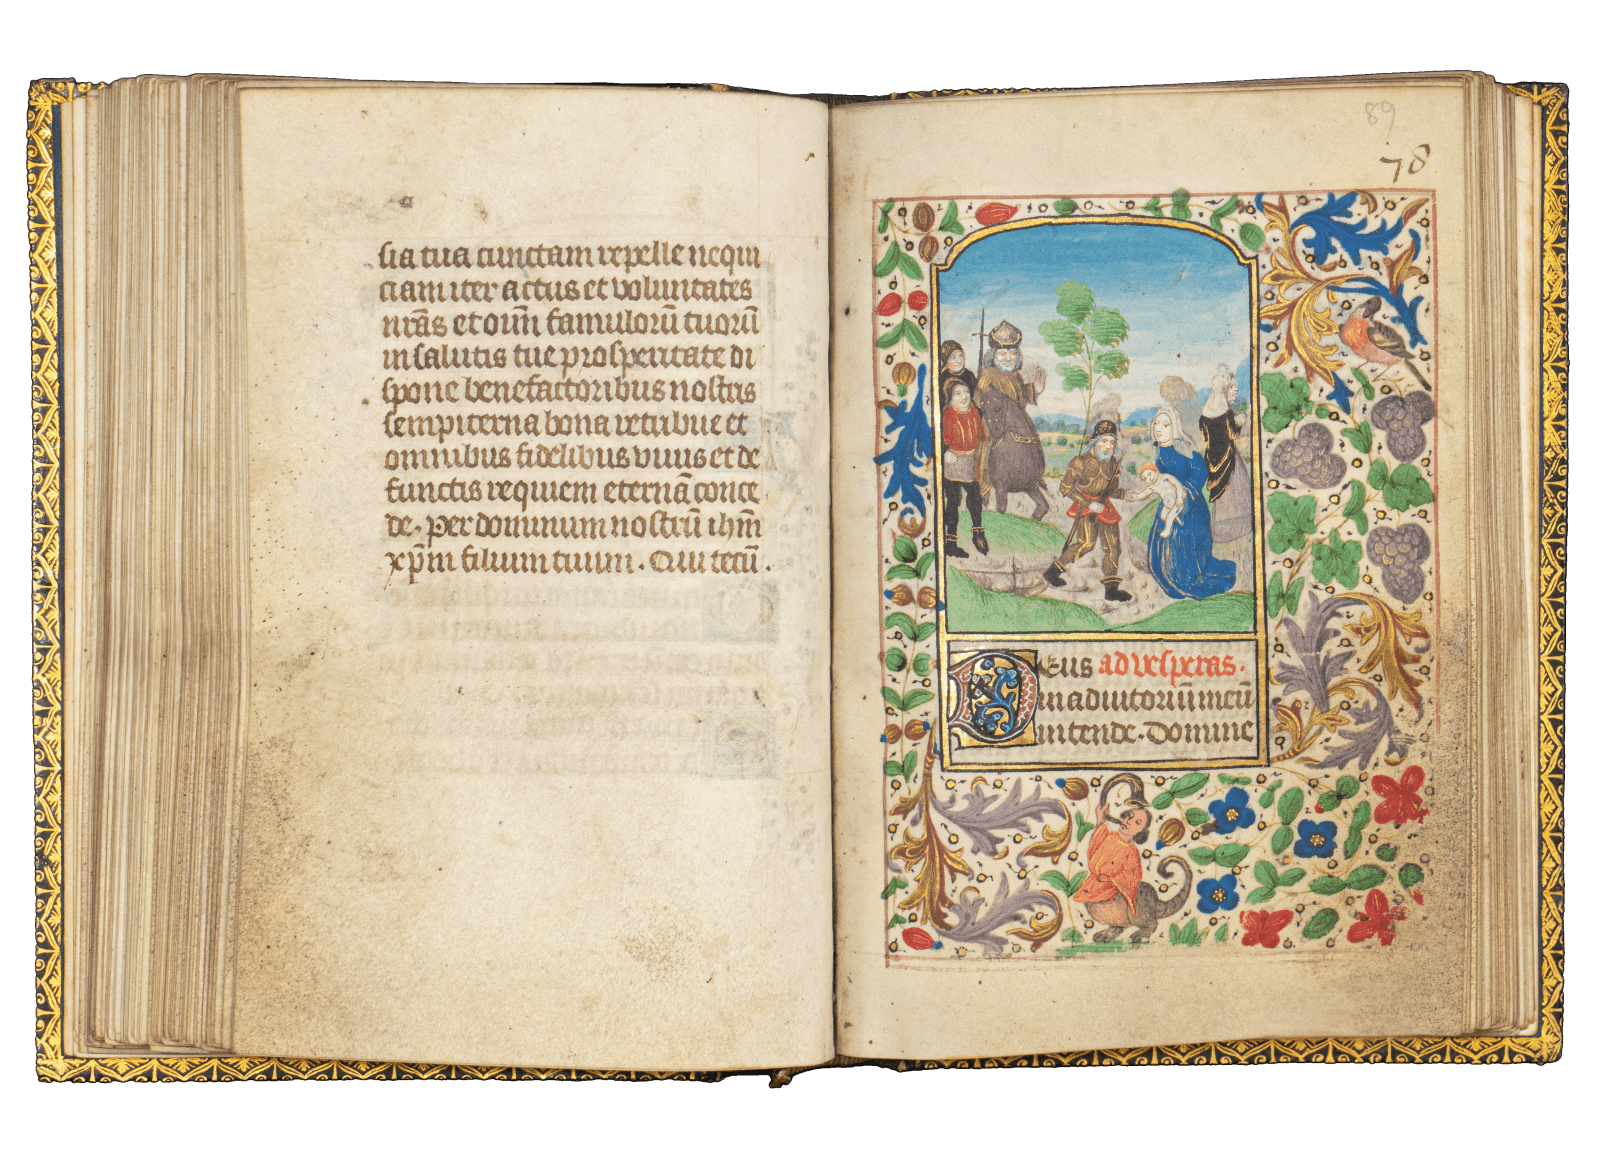 sia tua cunctam repelle nequi
ciam iter actus et voluntates
nr̄as et oīm famulorū tuorū
in salutis tue prosperitate di
spone benefactoribus nostris
sempiterna bona retribue et
omnibus fidelibus vivis et de
functis requiem eternā conce
de. per dominum nostrū ihm̄
xp̄m filium tuum. Qui tecū.
89
78
Deus ad vesperas.
in adiutoriū meū
intende. Domine